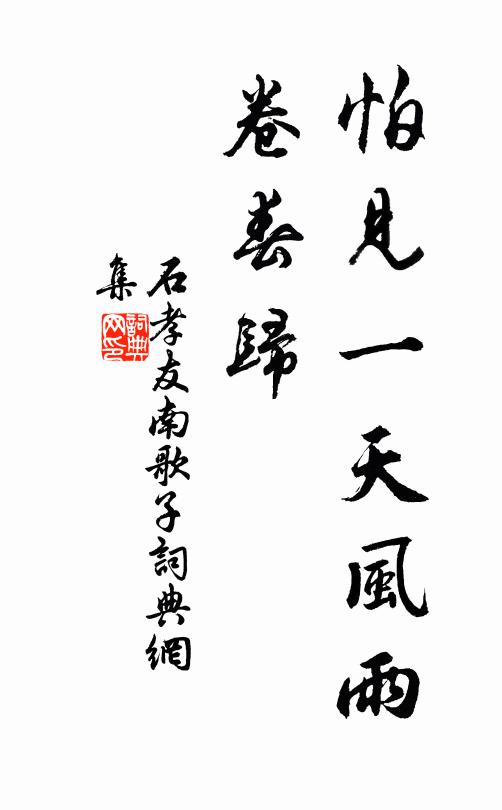 怕見一天風雨
卷春歸
石孝友南歌子詞典網
集
詞典
网印